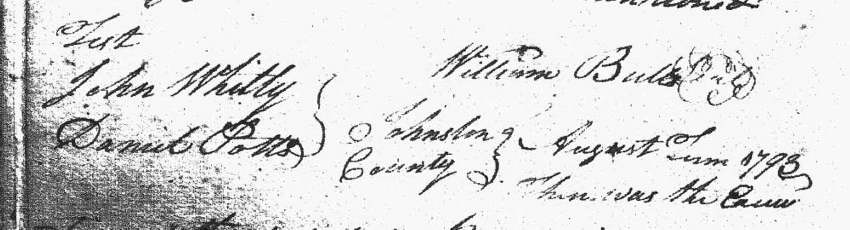 Test
John Whitly
Daniel Potts
William Bulls
Johnston
County
August Term 1793
Then was the